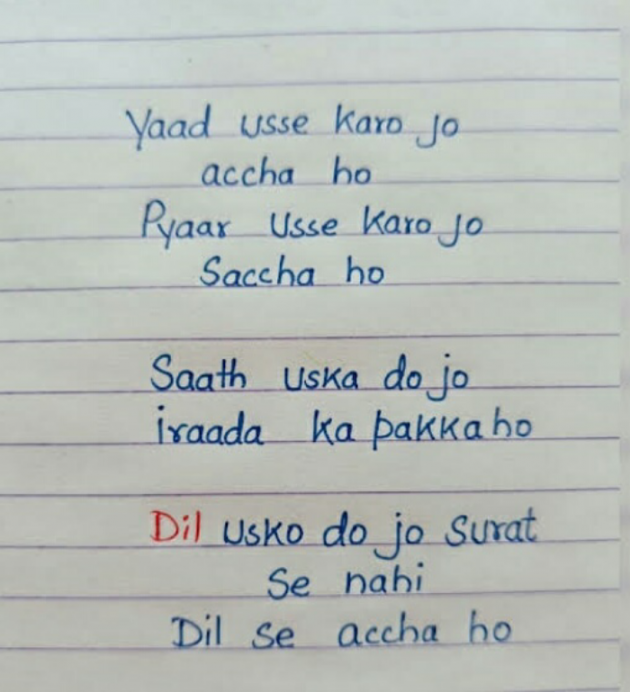 Yaad usse karo jo
accha ho
Pyaar usse karo jo
Saccha ho
Saath uska do jo
iraada ka pakka ho
Dil usko do jo surat
Se nahi
Dil se accha ho